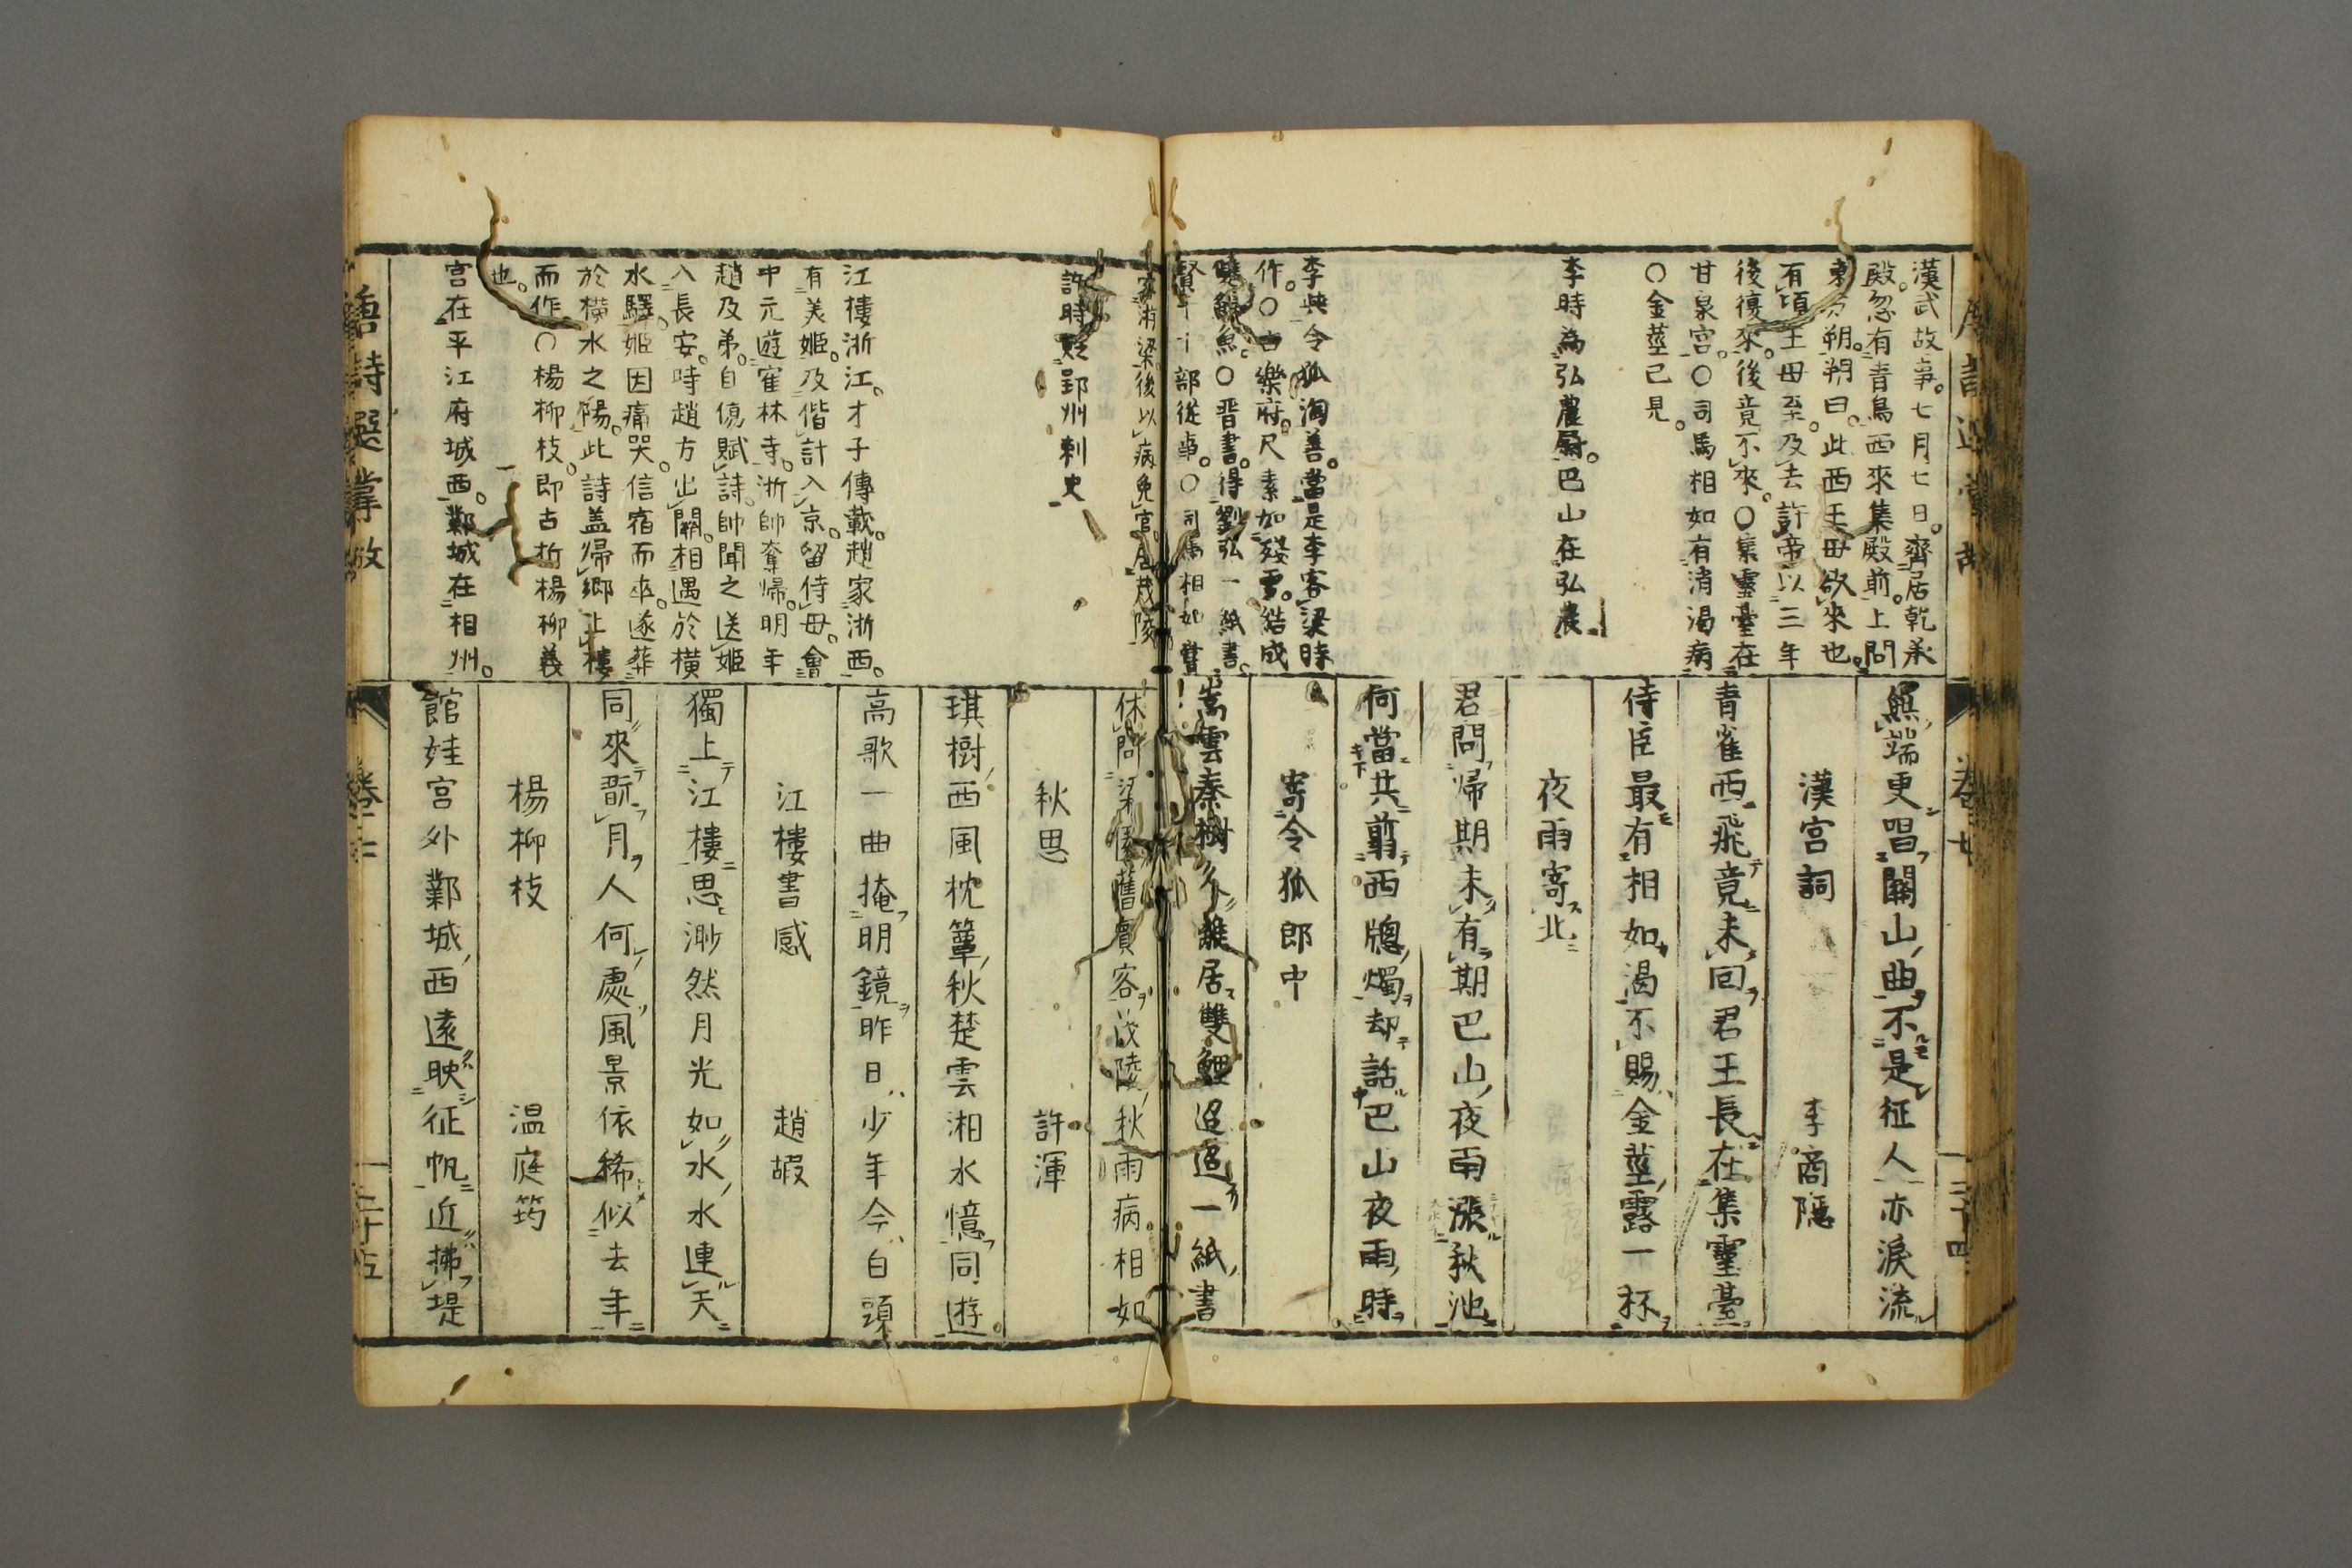 漢武故事。七月七日。齊居乾承
殿。忽有青鳥西來集殿前。上問
東方朔。朔曰。此西王母欲來也。
有頃王母至。及去許帝以三年
後復來。後竟不來。〇集靈臺在
甘泉宮。〇司馬相如有消渴病
〇金莖已見。
李時為弘農尉。巴山在弘農。
李與令狐淘善。當是李客梁時
作。〇古樂府。尺素如殘雪。結成
雙鯉魚。〇晋書。得劉弘一紙書。
賢于十部從事。〇司馬相如嘗
無端更唱關山曲不是征人亦淚流
漢宮詞 李商隱
青雀西飛竟未回君王長在集靈臺
侍臣最有相如渴不賜金莖露一杯
夜雨寄北
君問歸期未有期巴山夜雨漲秋池
何當共剪西牕燭却話巴山夜雨時
寄令狐郎中
嵩雲秦樹久離居雙鯉迢迢一紙書
卷七
三十四
客游梁後以病免官居茂陵
許時貶郢州刺史
江樓浙江。才子傳載。趙家浙西。
有美姬。及偕計入京。留侍母。會
中元遊寉林寺。浙帥奪歸。明年
趙及弟。自傷賦詩。帥聞之送姬
入長安。時趙方出關。相遇於橫
水驛。姬因痛哭。信宿而卒。遂葬
於橫水之陽。此詩盖歸鄉上樓
而作。〇楊柳枝。即古折楊柳義
也。
宮在平江府城西。鄴城在相州。
休問梁園舊賓客茂陵秋雨病相如
秋思 許渾
琪樹西風枕簟秋楚雲湘水憶同遊
高歌一曲掩明鏡昨日少年今白頭
江樓書感 趙嘏
獨上江樓思渺然月光如水水連天
同來翫月人何處風景依稀似去年
楊柳枝 温庭筠
館娃宮外鄴城西遠映征帆近拂堤
唐詩選掌故
三十五